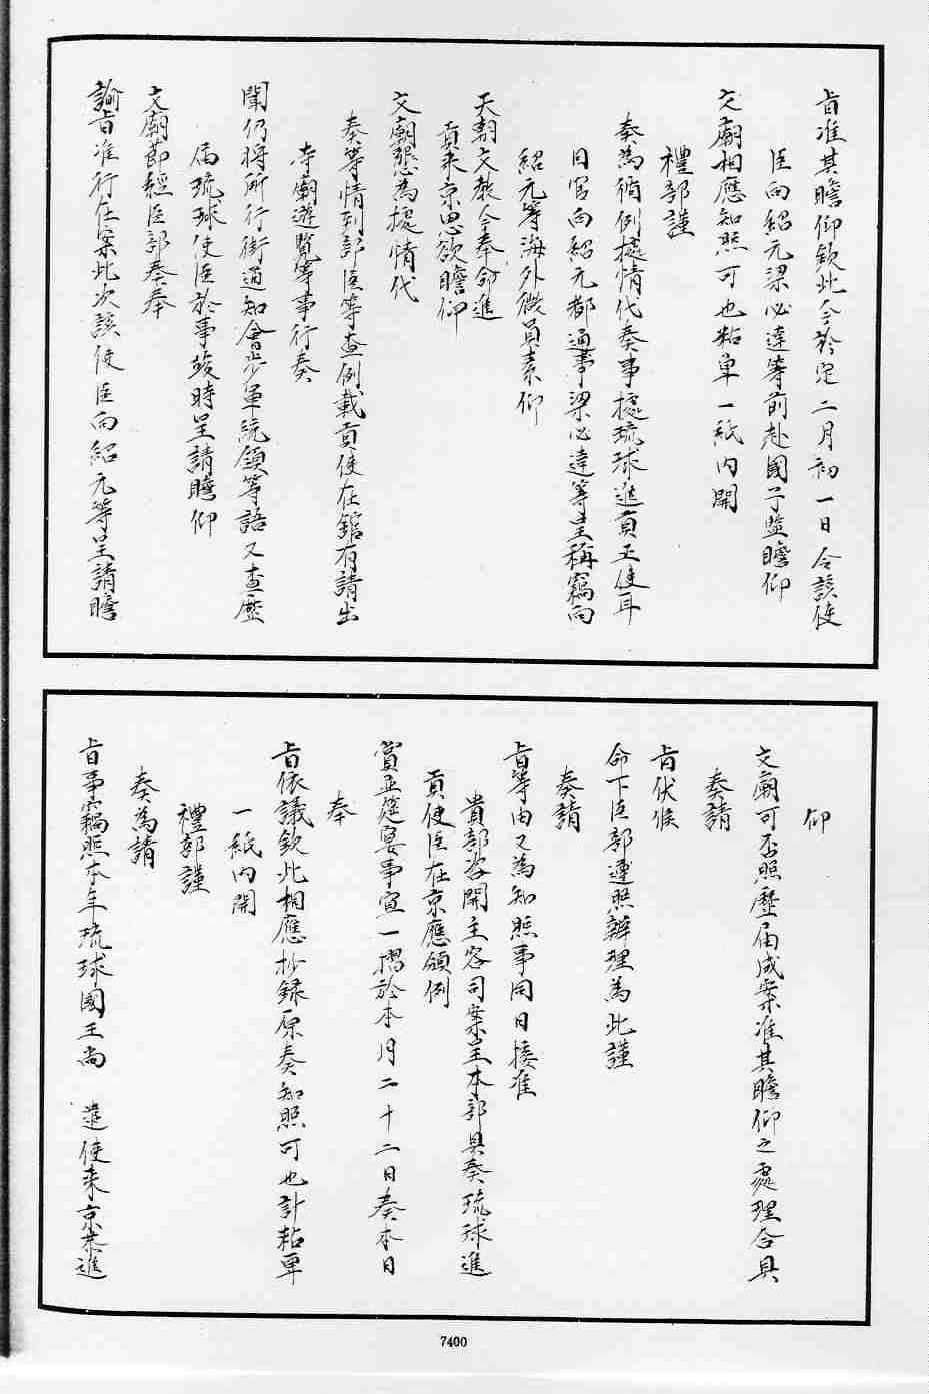 旨准其瞻仰欽此今於定二月初一日令該使
臣向紹元梁必達等前赴國子監瞻仰
文廟相應知照可也粘單一紙内開
禮部謹
奏為循例據情代奏事據琉球進貢正使耳
目官向紹元都通事梁必達等呈稱竊向
紹元等海外微員素仰
天朝文教今奉命進
貢來京思欲瞻仰
文廟懇為據情代
奏等情到部臣等查例載貢使在館有請出
寺廟遊覽等事行奏
聞仍將所行街道知會步軍統領等語又查歷
屆琉球使臣於事竣時呈請瞻仰
文廟節經臣部奏奉
諭旨准行在案此次該使臣向紹元等呈請瞻
仰
文廟可否照歷屆成案准其瞻仰之處理合具
奏請
旨伏候
命下臣部遵照辦理為此謹
奏請
旨等由又為知照事同日接准
貴部咨開主客司案呈本部具奏琉球進
貢使臣在京應領例
賞並筵宴事宜一摺於本月二十二日奏本日
奉
旨依議欽此相應抄錄原奏知照可也計粘單
一紙内開
禮部謹
奏為請
旨事竊照本年琉球國王尚 遣使來京恭進
7400